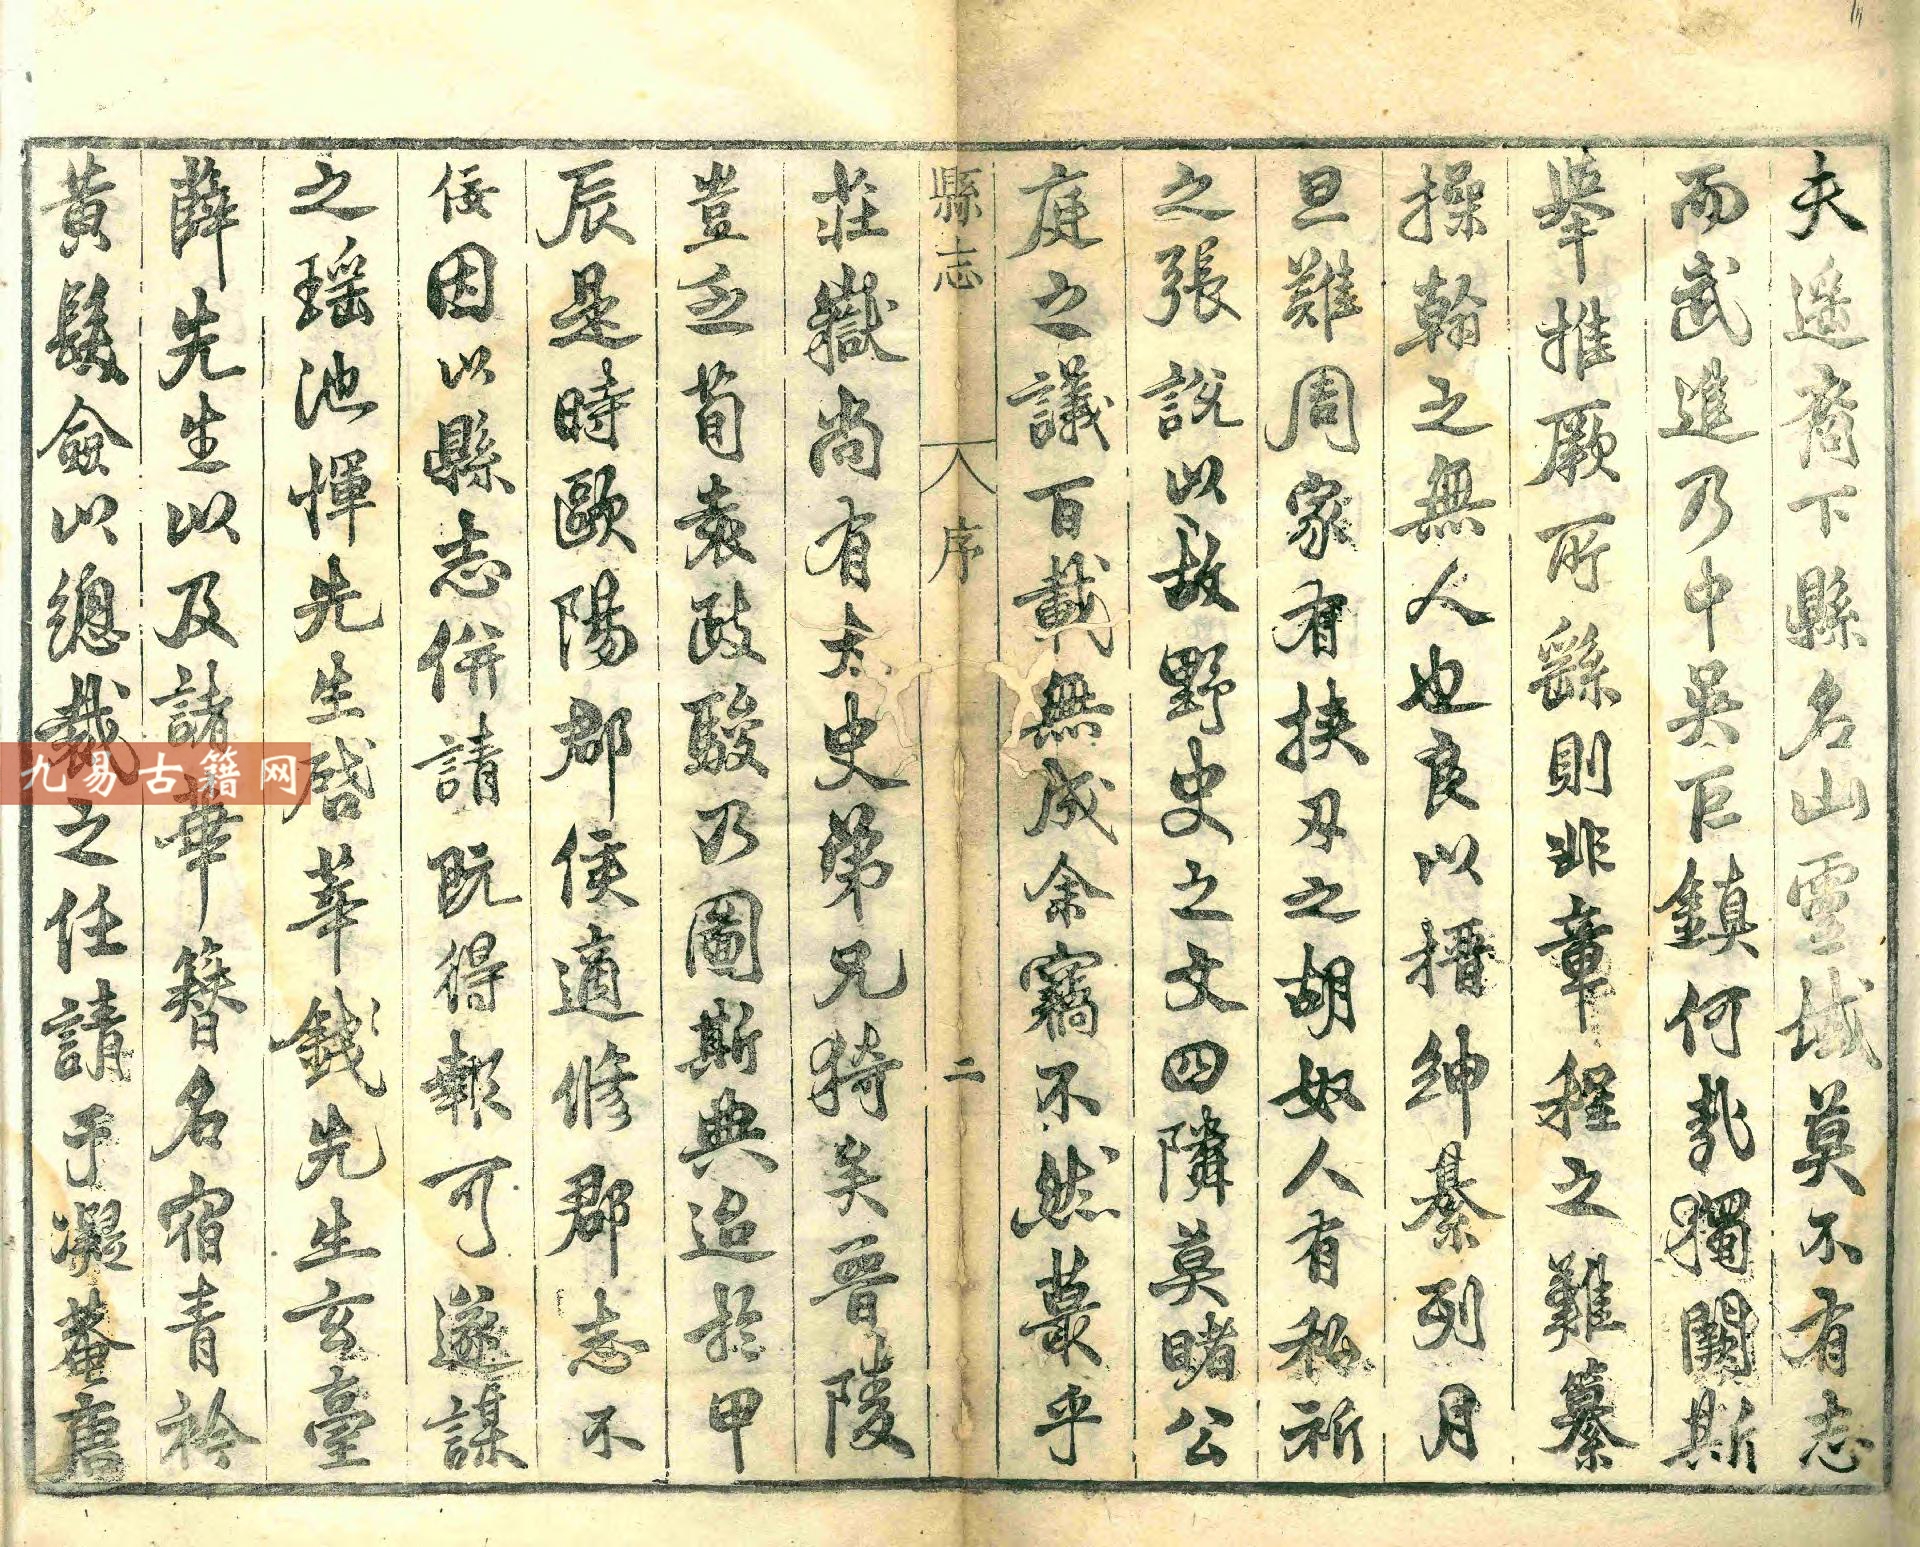 夫遥裔下縣名山靈域莫不有志
而武進乃中吳巨鎮何乳獨闕斯
舉推厥所繇則非章程之難纂
操翰之無人也良以搢紳綦列月
旦難周家有挟刃之胡奴人有私祈
之張說以故野史之文四隣莫睹公
庭之議百載無成余竊不然蕞乎
縣志 序 二
莊嶽尚有太史弟兄猗矣晉陵
豈乏荀袁政駿乃圖斯典迨於甲
辰是時歐陽郡侯適修郡志不
佞因以縣志併請既得報可遂謀
之瑶池惲先生啓莘錢先生玄臺
薛先生以及諸華簪名宿青衿
黃髮僉以總裁之任請于凝菴唐
九易古籍网